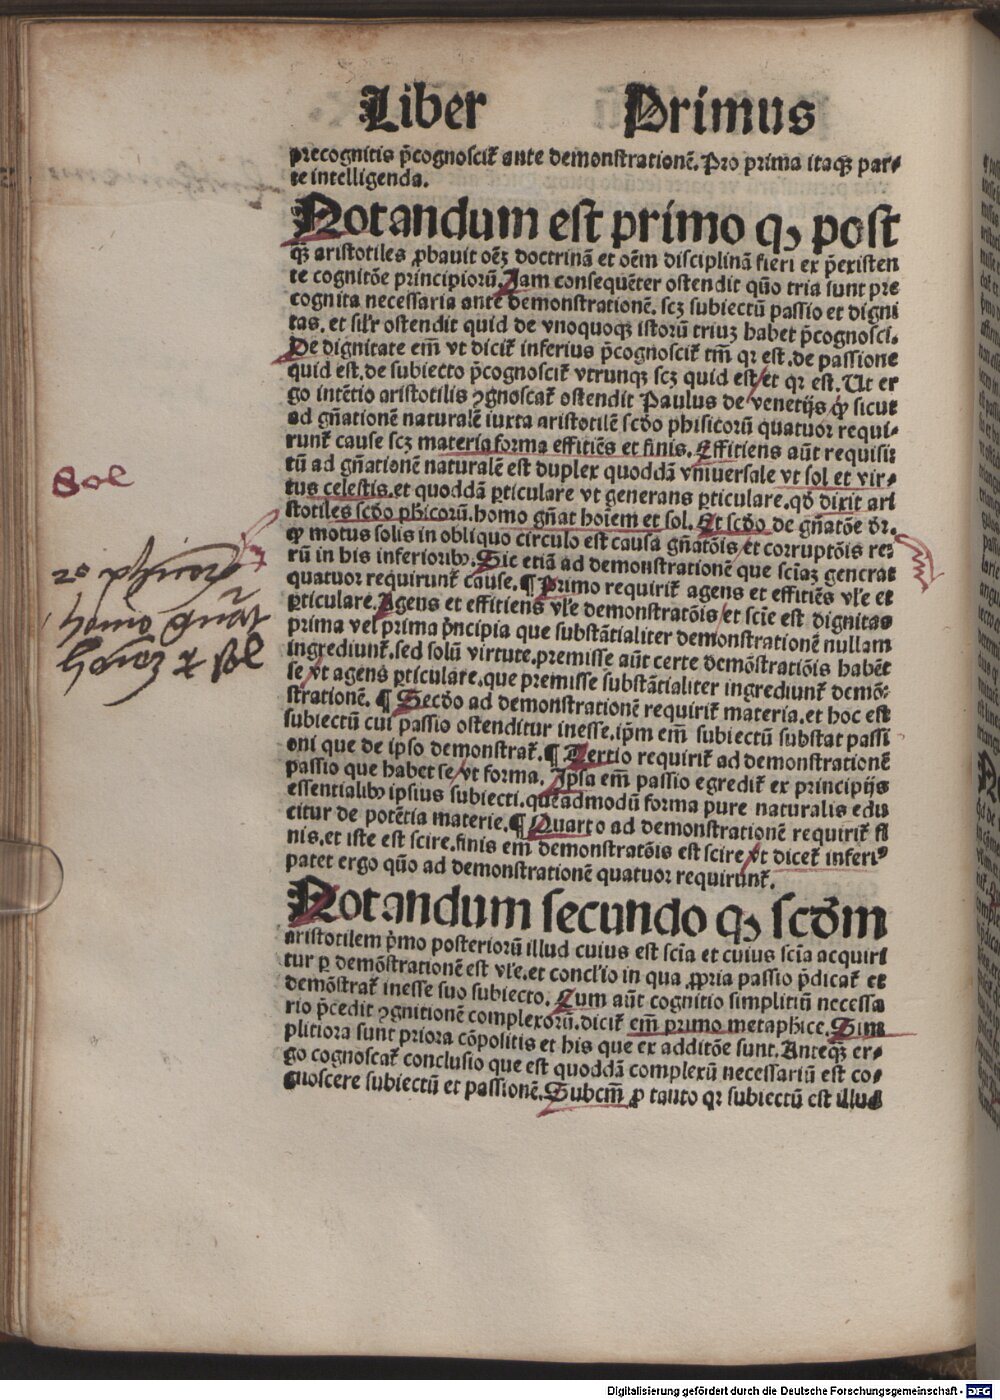 Liber Primus
precognitis p̄cognoscit̄ ante demonstrationē. Pro prima itaqꝫ par⸗
te intelligenda.
Notandum est primo qꝫ post
q̄ꝫ aristotiles ꝓbauit oēꝫ doctrinā et oēm disciplinā fieri ex p̄existen
te cognitōe principiorū. Jam consequēter ostendit quō tria sunt pre
cognita necessaria ante demonstrationē. scꝫ subiectū passio et digni
tas. et silr̄ ostendit quid de vnoquoqꝫ istorū triuꝫ habet p̄cognosci.
De dignitate em̄ vt dicit̄ inferius p̄cognoscit̄ tm̄ qꝛ est. de passione
quid est. de subiecto p̄cognoscit̄ vtrunqꝫ scꝫ quid est et qꝛ est. Ut er
go intētio aristotilis ꝯgnoscat̄ ostendit Paulus de venetijs ꝙ sicut
ad gn̄ationē naturalē iuxta aristotilē scd̄o phisicorū quatuor requi⸗
runt̄ cause scꝫ materia forma effitiēs et finis. Effitiens aūt requisi
tū ad gn̄ationē naturalē est duplex quoddā vniuersale vt sol et vir⸗
tus celestis. et quoddā ꝑticulare vt generans ꝑticulare. qd̄ dixit ari
stotiles scd̄o phicorū. homo gn̄at hoīem et sol. Et scd̄o de gn̄atōe dr̄.
ꝙ motus solis in obliquo circulo est causa gn̄atōis et corruptōis re⸗
rū in his inferioribꝰ. Sic etiā ad demonstrationē que sciaꝫ generat
quatuor requirunt̄ cause. ¶ Primo requirit̄ agens et effitiēs vl̄e et
ꝑticulare. Agens et effitiens vl̄e demonstratōis et scīe est dignitas
prima vel prima p̄ncipia que substātialiter demonstrationē nullam
ingrediunt̄. sed solū virtute. premisse aūt certe demōstratiōis habēt
se vt agens ꝑticulare. que premisse substātialiter ingrediunt̄ demō⸗
strationē. ¶ Secd̄o ad demonstrationē requirit̄ materia. et hoc est
subiectū cui passio ostenditur inesse. ip̄m em̄ subiectū substat passi
oni que de ipso demonstrat̄. ¶ Tertio requirit̄ ad demonstrationē
passio que habet se vt forma. Ipsa em̄ passio egredit̄ ex principijs
essentialibꝰ ipsius subiecti. quēadmodū forma pure naturalis edu
citur de potētia materie. ¶ Quarto ad demonstrationē requirit̄ fi
nis. et iste est scire. finis em̄ demonstratōis est scire vt dicet̄ inferiꝰ
patet ergo quō ad demonstrationē quatuor requirunt̄.
Notandum secundo qꝫ scd̄m
aristotilem p̄mo posteriorū illud cuius est scīa et cuius scīa acquiri
tur ꝑ demōstrationē est vl̄e. et concl'io in qua ꝓpria passio p̄dicat̄ et
demōstrat̄ inesse suo subiecto. Cum aūt cognitio simplitiū necessa
rio p̄cedit ꝯgnitionē complexorū. dicit̄ em̄ primo metaphīce. Sim
plitiora sunt priora cōpolitis et his que ex additōe sunt. Anteqꝫ er⸗
go cognoscat̄ conclusio que est quoddā complexū necessariū est co⸗
gnoscere subiectū et passionē. Subcm̄ ꝓ tanto qꝛ subiectū est illud
Sol
Digitalisierung gefördert durch die Deutsche Forschungsgemeinschaft - DFG